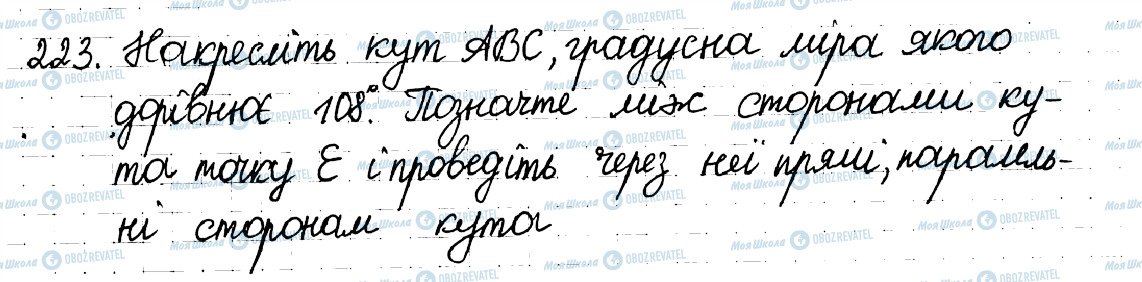 223. Накресліть кут ABC, градусна міра якого
дорівнює 108°. Позначте між сторонами ку-
та точку E і проведіть через неї прямі, паралель-
ні сторонам кута